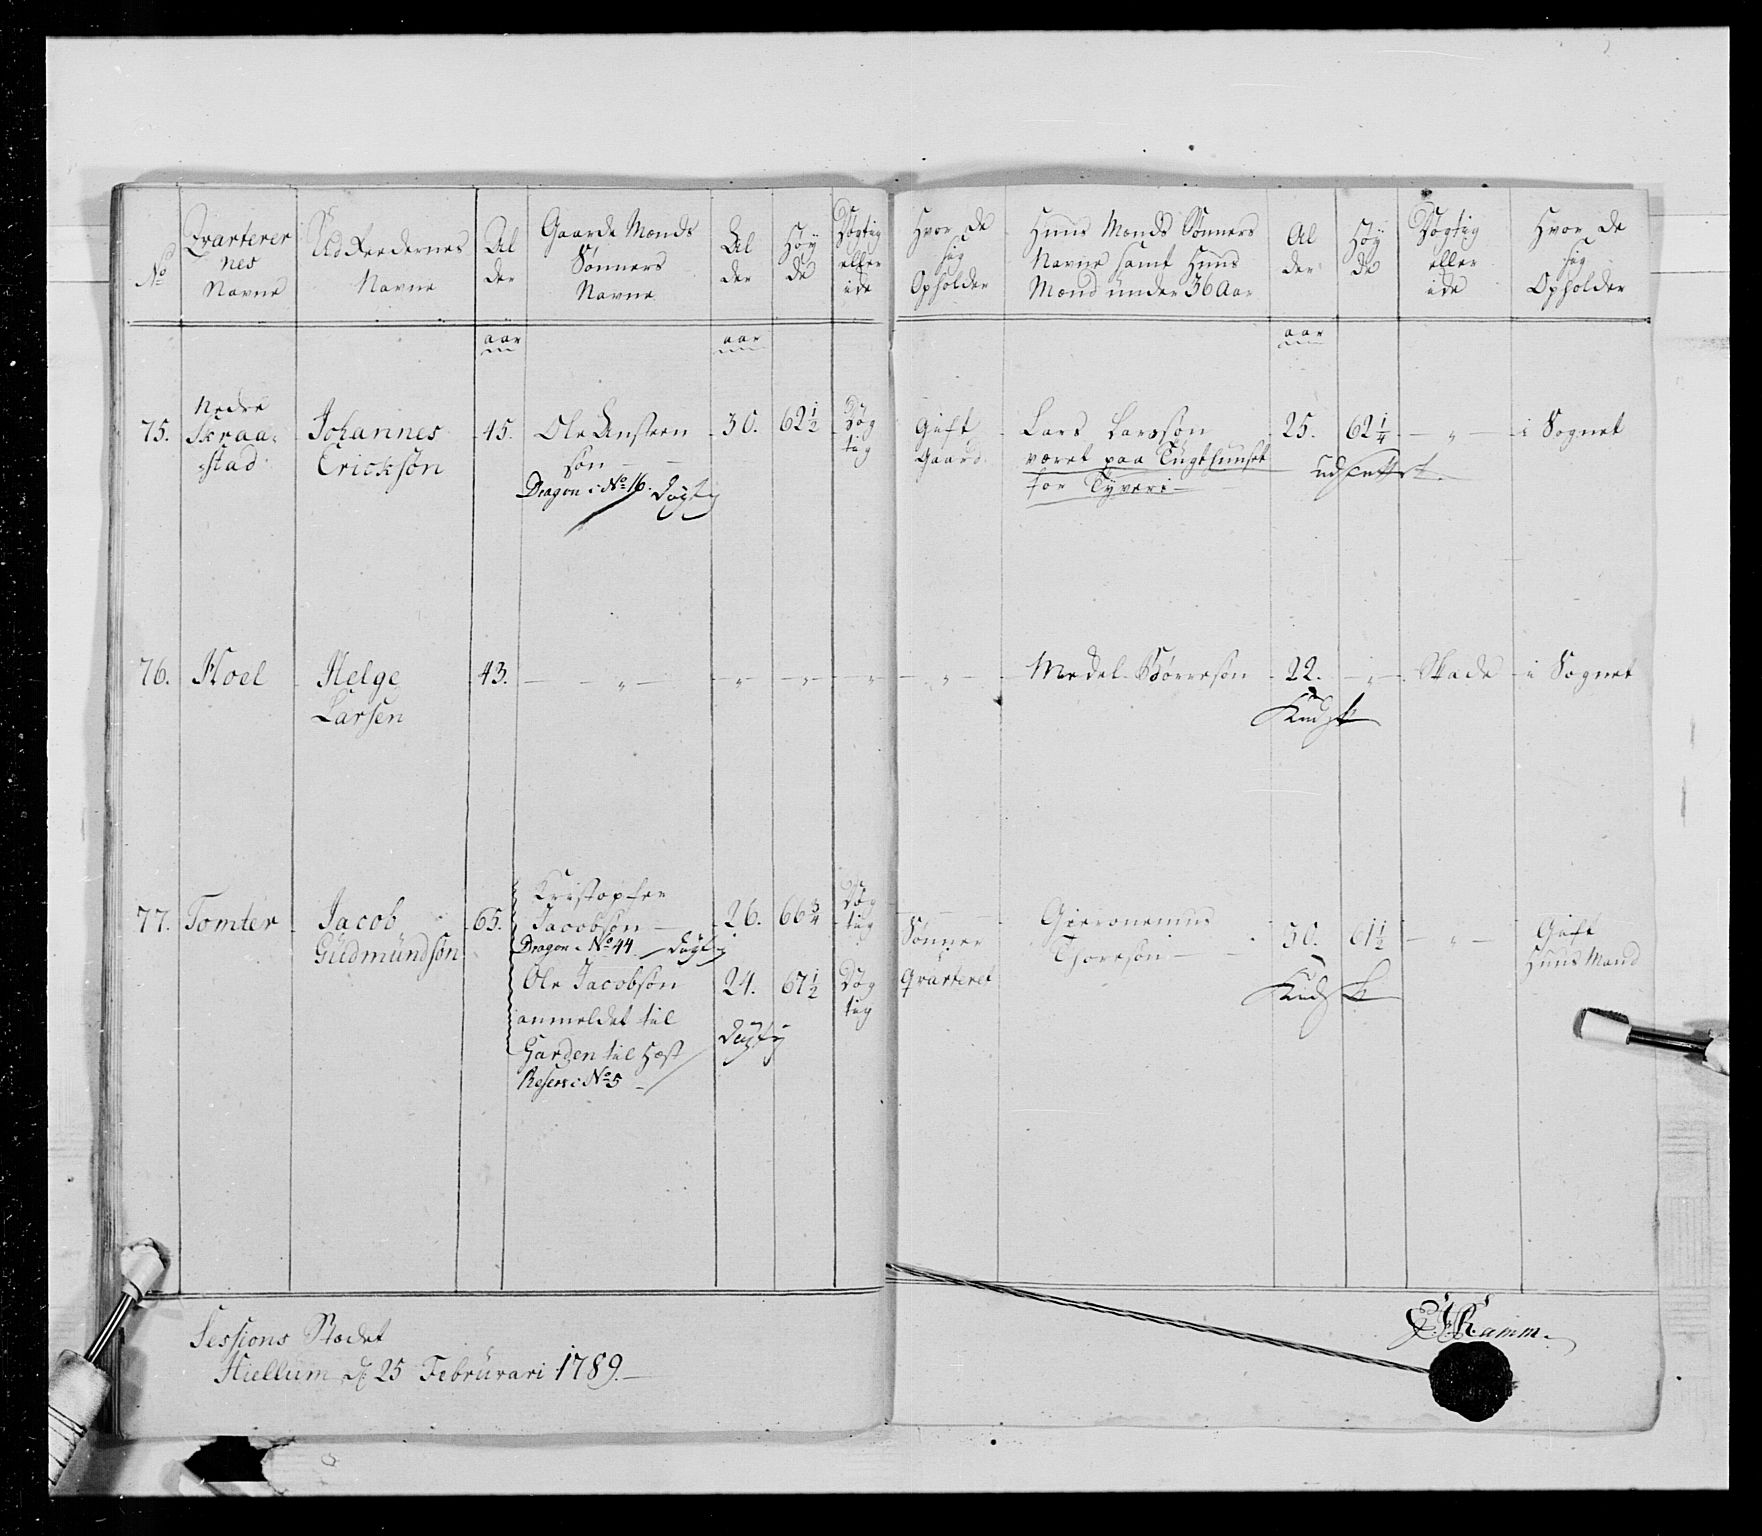 No
Qvarterer
nes
Navne
Udreedernes
Navne
Al
der
Gaarde Mænds
Sønners
Navne
Al
der
Høy
de
Døgtig
eller
ide
Hvor de
sig
Opholder
Huus Mænds Sønners
Navne samt Huus
Mænd under 36 Aar
Al
der
Høy
de
Døgtig
eller
ide
Hvor de
sig
Opholder
aar
aar
aar
75.
Nedre
Skraa-
stad
Johannes
Erickson
45.
Ole Ansteen
søn
Dragon i No 16. Dügtig
30.
62 1/2
Døg
tig
Gift
Gaard.
Lars Larssøn
været paa Tugthuuset
for Tyveri
25.
62 1/4
udslettet.
i Sognet
76.
Hoel
Helge
Larsen
43.
Medel Børresøn
22.
Skade
i Sognet
77.
Tomter
Jacob
Güdmündsøn
65.
Kristopher
Jacobsøn
Dragon i No 44. Dügtig
26.
66 3/4
Døg
tig
Ole Jacobsøn
anmeldet til
Garden til Hest
Reserv: No 5
24.
67 1/2
Døg
tig
Dügtig
Sønner
Qvarteret
Gieronemus
Thoresøn
30.
61 1/2
Gift
Huus Mand
Sessions Stædet
Hiellum d 25 Februrari 1789.